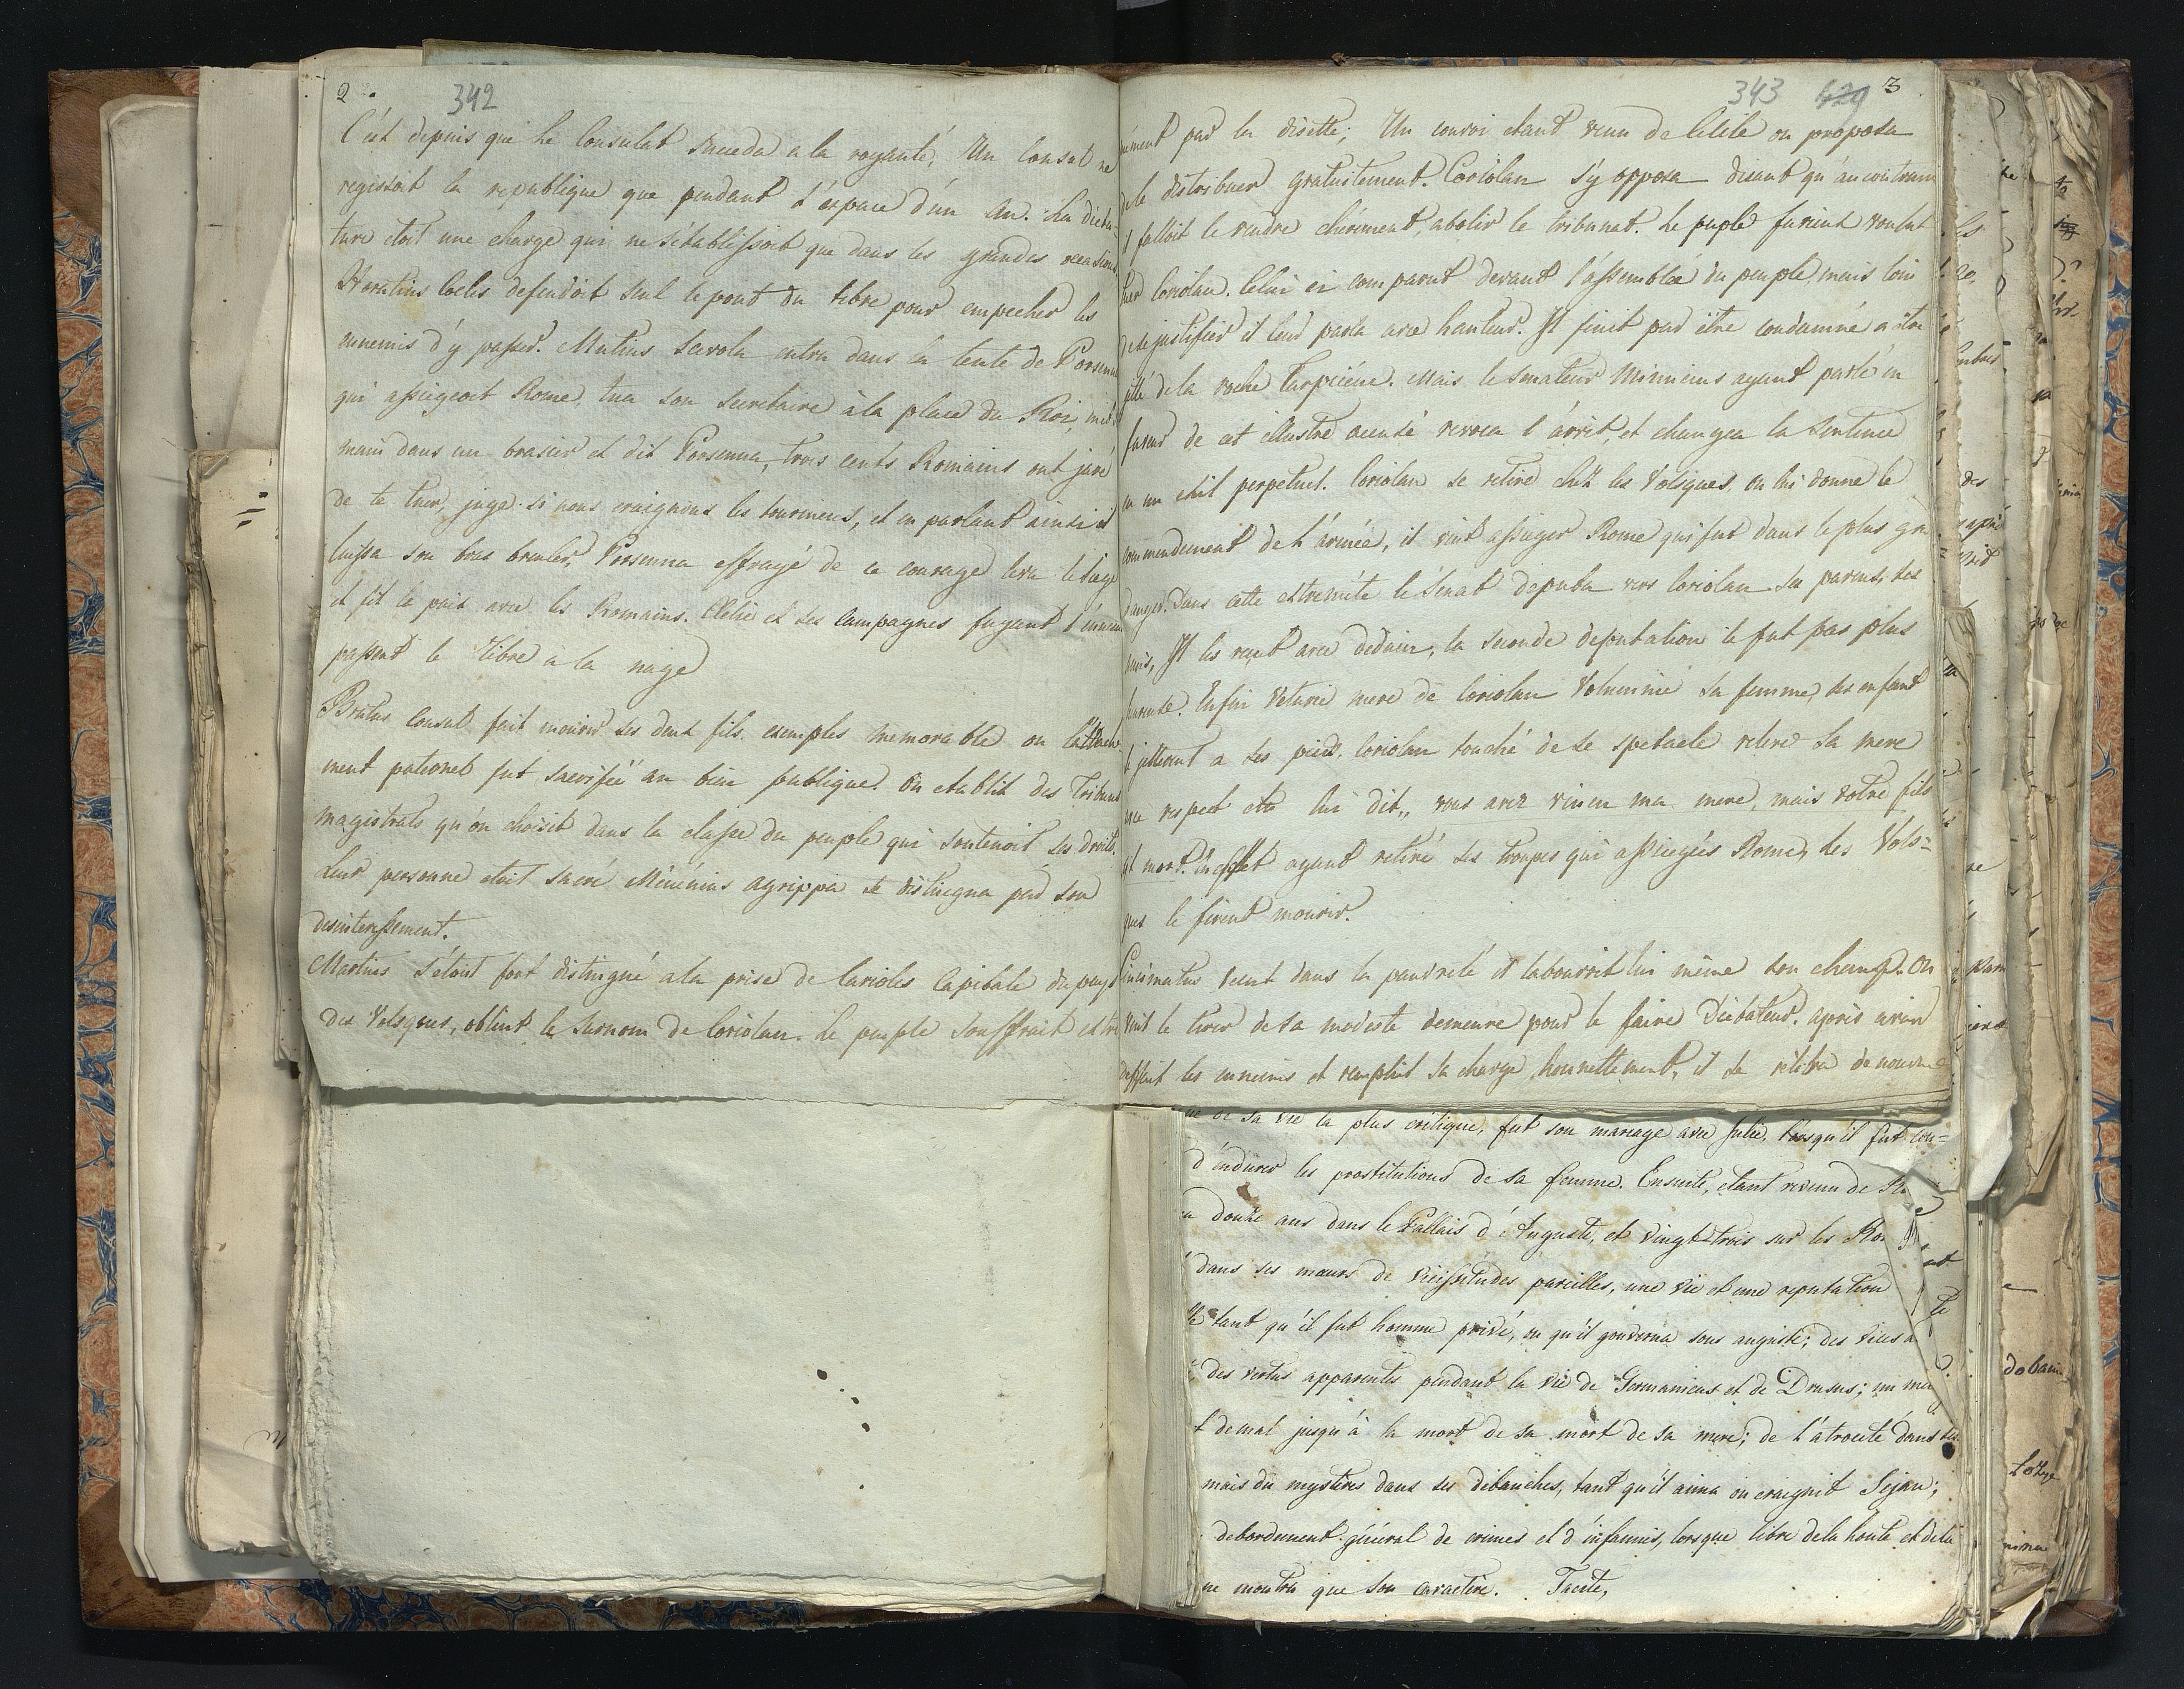 2.
342
C'est depuis que le Consulat succeda a la royauté, Un Consul ne
regissoit la republique que pendant l'espace d'un An. La dicta-
ture etoit une charge qui ne s'établissoit que dans les grandes occasions
Horatius Cocles defendoit seul le pont du tibre pour empecher les
ennemis d'y passer. Mutius Scevola entra dans la tente de Porsenna
qui assiegeoit Rome, tua son secretaire à la place du Roi, mit
main dans un brasier et dit Porsenna, trois cents Romains ont juré
de te tuer, juge si nous craignons les tourmens, et en parlant ainsi il
laissa son bras bruler, Porsenna effrayé de ce courage leva le siege
et fit la paix avec les Romains. Clelie et ses Compagnes fuyant l'ennemi
passent le Tibre à la nage
Brutus Consul fait mourir ses deux fils exemples memorable ou l'attache-
ment paternel fut sacrifié au bien publique. On etablit des Tribuns
magistrats qu'on choisit dans la classe du peuple qui soutenoit ses droits.
Leur personne etoit sacré Ménénius Agrippa se distingua par son
desinteressement.
Martius s'étoit fort distingué a la prise de Carioles Capitale du pays
des Volsques, obtint le surnom de Coriolan. Le peuple souffrait extre
343 429 3
mement par la disette; Un convoi etant venu de Cicile on proposa
de le distribuer gratuitement. Coriolan s'y opposa disant qu'au contraire
il falloit le vendre chérement, abolir le tribunat. Le puple furieux voulut
tuer Coriolan. Celui ci comparut devant l'assemblée du peuple, mais loin
de se justifier il leur parla avec hauteur. Il finit par être condamné a être
jetté de la roche Tarpeiéne. Mais le Senateur Minucius ayant parlé en
faveur de cet illustre accusé revoca l'arrêt, et changea la Sentence
en un exil perpetuel. Coriolan se retire chez les Volsques on lui donne le
commendement de l'armée, il vint assieger Rome qui fut dans le plus gra
danger. Dans cette extremité le Sénat deputa vers Coriolan ses parens, ses
amis, Il les reçut avec dedain, la seconde deputation le fut pas plus
hureuse. Enfin Veturie mere de Coriolan Volumnie sa femme, ses enfant
se jetterent a ses pieds, Coriolan touché de se spectacle releve sa mere
avec respect et lui dit,, vous avez vincu ma mere, mais votre fils
est mort. En effet ayant retiré ses troupes qui assiegés Rome, les Vols=
ques le firent mourir.
Cincinatus vecut dans la pauvreté il labourroit lui même son champ. On
vint le tirer de sa modeste demeure pour le faire Dictateur. Après avoir
deffait les ennemis et remplit sa charge honnettement, il se retira de nouve
de sa vie la plus critique, fut son mariage avec Julie, lorsqu'il fut con=
d'endurer les prostitutions de sa femme. Ensuite, etant revenu de Rh
douze ans dans le Pallais d'Auguste, et vingt-trois sur les Ro
dans ses mœurs de vicissitudes pareilles, une vie et une reputation
tant qu'il fut homme privé, ou qu'il gouverna sous auguste; des vices a
des vertus apparentes pendant la vie de Germanicus et de Drusus; un me
t de mal jusqu'à la mort de sa mort de sa mere; de l'atrocité dans ses
mais du mystères dans ses débauches, tant qu'il aima ou craignit Sejan;
debordement général de crimes et d'infamies, lorsque libre de la honte et de la
ne montra que son caractère. Tacite,